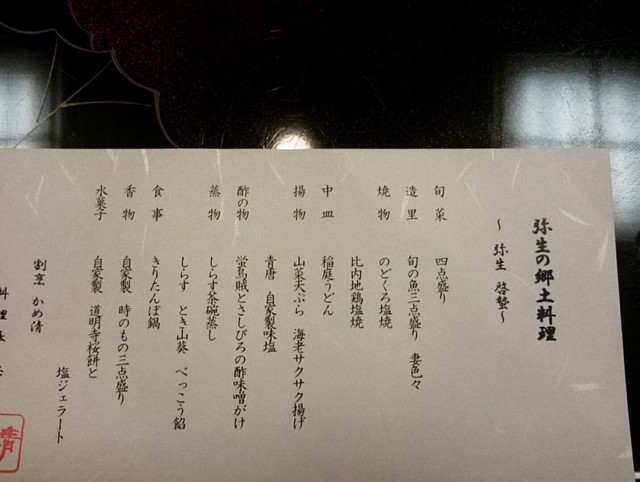 弥生の郷土料理
～ 弥生 啓蟄～
旬菜 四点盛り
造里 旬の魚三点盛り 妻色々
焼物 のどくろ塩焼
比内地鶏塩焼
中皿 稲庭うどん
揚物 山菜天ぷら 海老サクサク揚げ
青唐 自家製味塩
酢の物 蛍烏賊とさしびろの酢味噌がけ
蒸物 しらす茶碗蒸し
しらす とき山葵 べっこう餡
食事 きりたんぽ鍋
香物 自家製 時のもの三点盛り
水菓子 自家製 道明寺桜餅と
塩ジェラート
割烹 かめ清
料理長